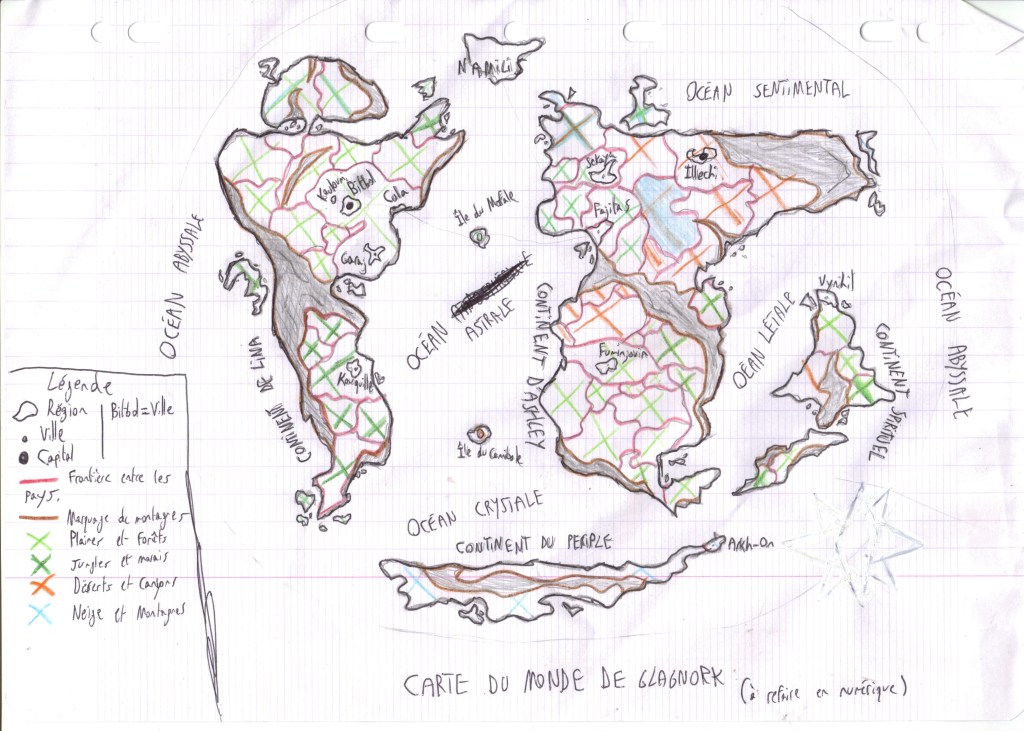 N'AMILIS
OCÉAN SENTIMENTAL
Jekaya
Illechi
Kaufouin
Bilbod
Cola
Île du Mofale
Fajitas
Garaj
OCÉAN ABYSSALE
OCÉAN
ASTRALE
CONTINENT D'ASHLEY
OCÉAN LÉTALE
Vyrihil
CONTINENT SPIRITUEL
OCÉAN ABYSSALE
CONTINENT DE LINA
Kaiquille
Fuminjouin
Île du Cannibale
Légende
Région
Bilbod = Ville
Ville
Capital
Frontière entre les
pays.
Marquage de montagnes
Plaines et Forêts
Jungles et marais
Déserts et Canyons
Neige et Montagnes
OCÉAN CRYSTALE
CONTINENT DU PERIPLE
Arkh-On
CARTE DU MONDE DE GLAGNORK
(à refaire en numérique)